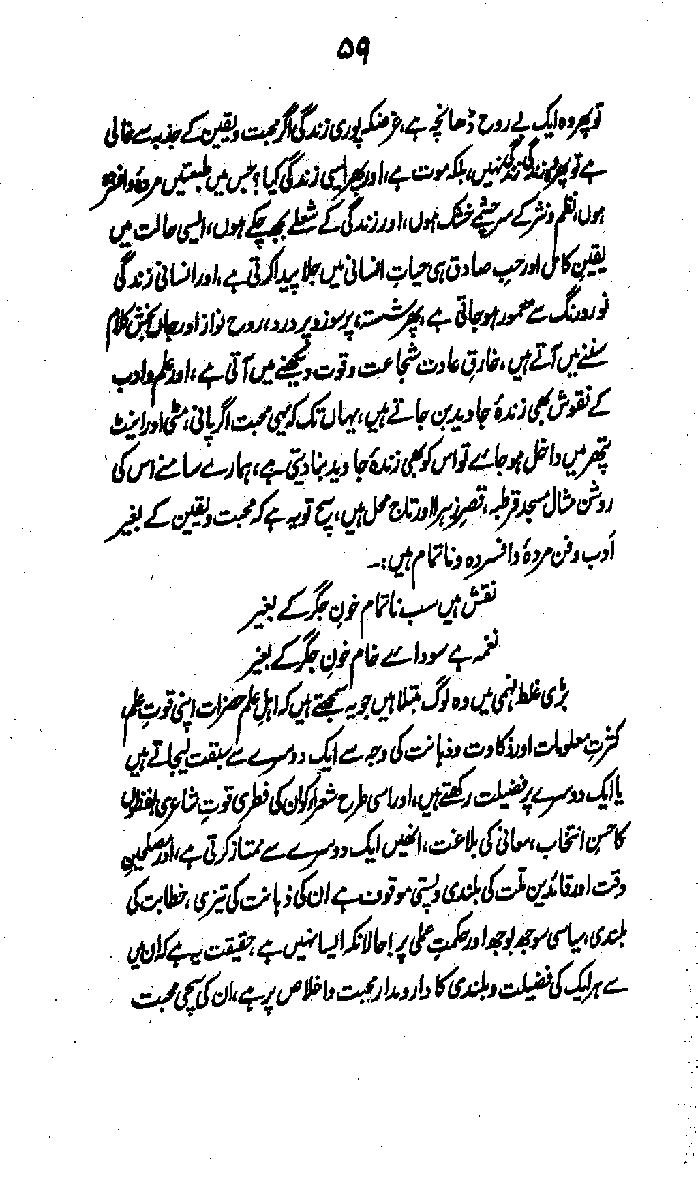 ۵۹
تو پھر وہ ایک بے روح ڈھانچہ ہے، غرضکہ پوری زندگی اگر محبت و یقین کے جذبہ سے خالی
ہے تو پھر وہ زندگی زندگی نہیں، بلکہ موت ہے، اور پھر ایسی زندگی کیا؟ جس میں طبیعتیں مردہ و افسردہ
ہوں، نظم و نثر کے سرچشمے خشک ہوں، اور زندگی کے شعلے بجھ چکے ہوں، ایسی حالت میں
یقین کامل اور حب صادق ہی حیاتِ انسانی میں جلا پیدا کرتی ہے، اور انسانی زندگی
نور و رنگ سے معمور ہوجاتی ہے، پھر شستہ، پرسوز و پردرد، روح نواز اور جاں بخش کلام
سننے میں آتے ہیں، خارقِ عادت شجاعت و قوت دیکھنے میں آتی ہے، اور علم و ادب
کے نقوش بھی زندۂ جاوید بن جاتے ہیں، یہاں تک کہ یہی محبت اگر پانی، مٹی اور اینٹ
پتھر میں داخل ہوجائے تو اس کو بھی زندۂ جاوید بنا دیتی ہے، ہمارے سامنے اس کی
روشن مثال مسجد قرطبہ، قصرِ زہرا اور تاج محل ہیں، سچ تو یہ ہے کہ محبت و یقین کے بغیر
ادب و فن مردہ و افسردہ و ناتمام ہیں:۔
نقش ہیں سب ناتمام خونِ جگر کے بغیر
نغمہ ہے سودائے خام خونِ جگر کے بغیر
بڑی غلط فہمی میں وہ لوگ مبتلا ہیں جو یہ سمجھتے ہیں کہ اہل علم حضرات اپنی قوتِ علم
کثرتِ معلومات اور ذکاوت و ذہانت کی وجہ سے ایک دوسرے سے سبقت لیجاتے ہیں
یا ایک دوسرے پر فضیلت رکھتے ہیں، اور اسی طرح شعراء کو ان کی فطری قوتِ شاعری، لفظوں
کا حسنِ انتخاب، معانی کی بلاغت، انھیں ایک دوسرے سے ممتاز کرتی ہے، اور مصلحینِ
وقت اور قائدینِ ملت کی بلندی و پستی موقوف ہے ان کی ذہانت کی تیزی، خطابت کی
بلندی، سیاسی سوجھ بوجھ اور حکمتِ عملی پر! حالانکہ ایسا نہیں ہے، حقیقت یہ ہے کہ ان میں
سے ہر ایک کی فضیلت و بلندی کا دارومدار محبت و اخلاص پر ہے، ان کی سچی محبت